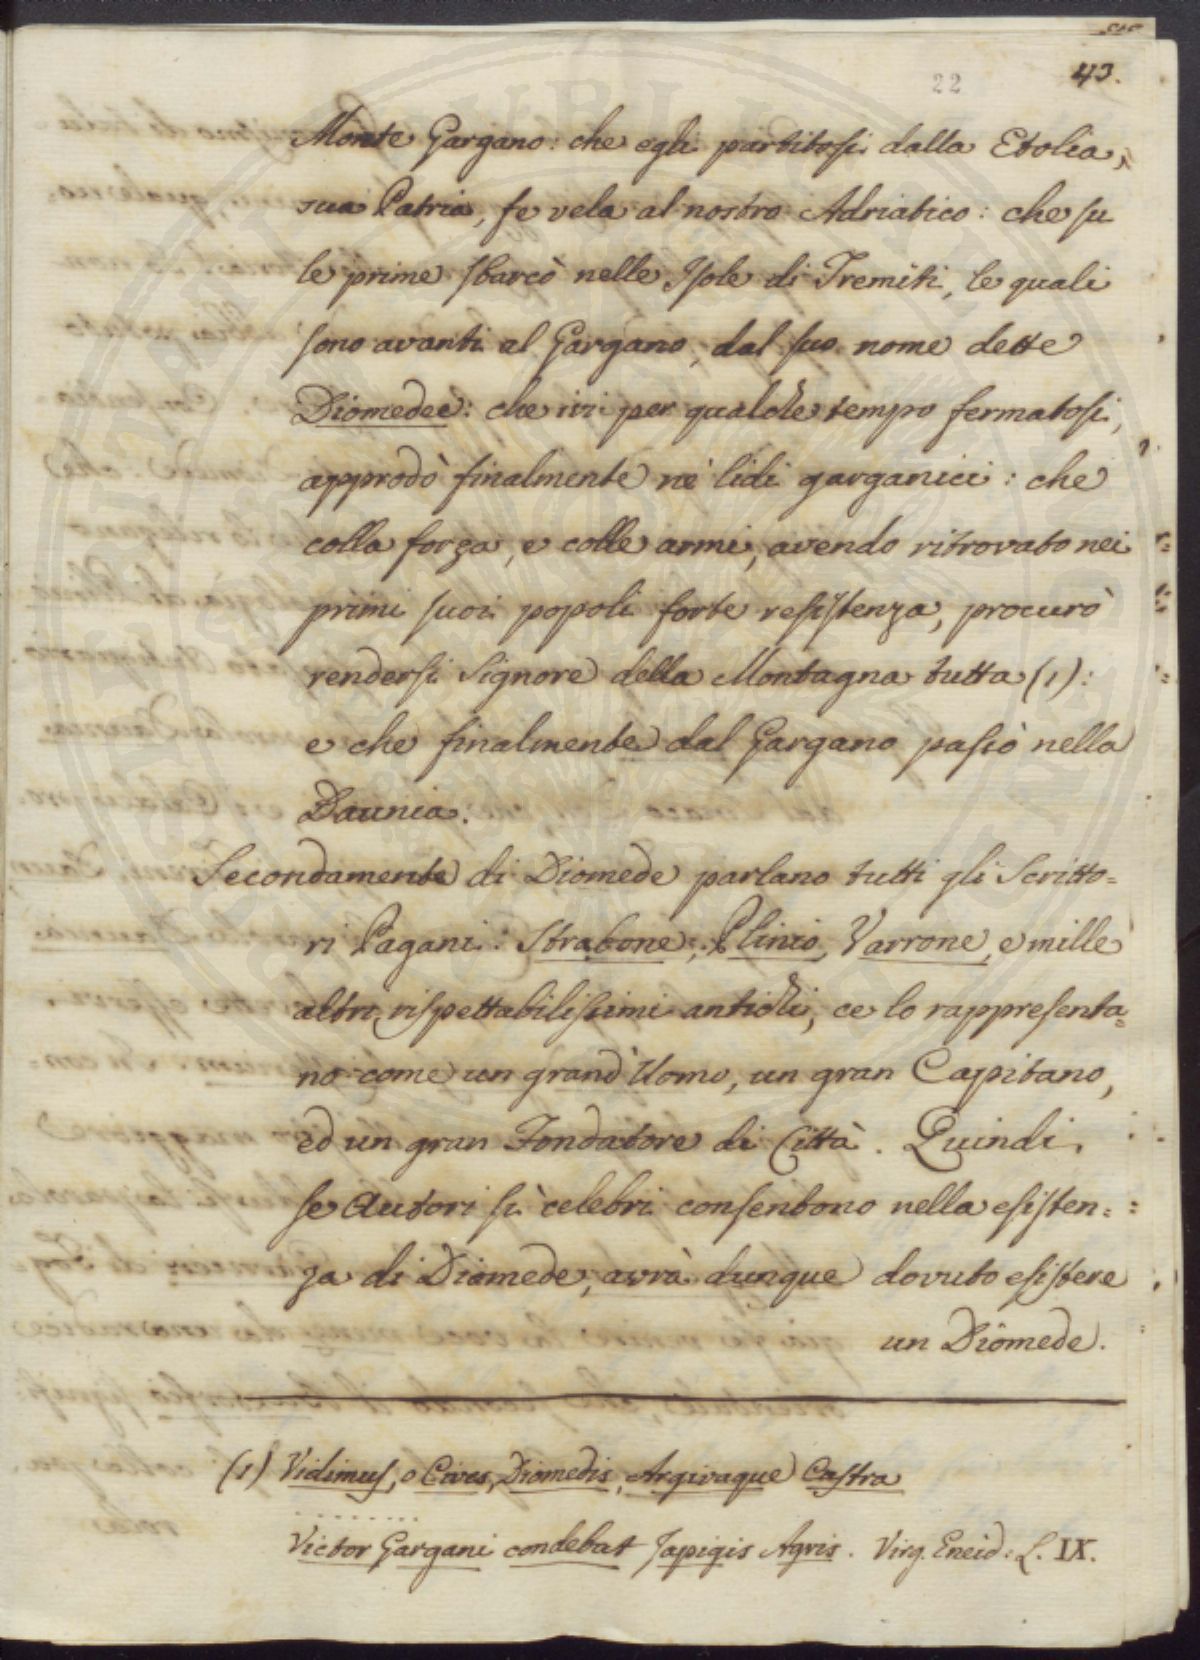 43.
22
Monte Gargano: che egli partitosi dalla Etolia,
sua Patria, fe vela al nostro Adriatico: che su
le prime sbarcò nelle Isole di Tremiti, le quali
sono avanti al Gargano, dal suo nome dette
Diomedee: che ivi per qualche tempo fermatosi,
approdò finalmente ne' lidi garganici: che
colla forza, e colle armi, avendo ritrovato nei
primi suoi popoli forte resistenza, procurò
rendersi Signore della Montagna tutta (1):
e che finalmente dal Gargano passò nella
Daunia.
Secondamente di Diomede parlano tutti gli Scritto=
ri Pagani: Strabone, Plinio, Varrone, e mille
altri rispettabilissimi antichi, ce lo rappresenta=
no come un grand'Uomo, un gran Capitano,
ed un gran Fondatore di Città. Quindi,
se Autori sì celebri consentono nella esisten=
za di Diomede, avrà dunque dovuto esistere
un Diomede.
(1) Vidimus, o Cives, Diomedis, Argivaque Castra
. . . . . . . .
Victor Gargani condebat Japigis Agris. Virg. Eneid: L. IX.